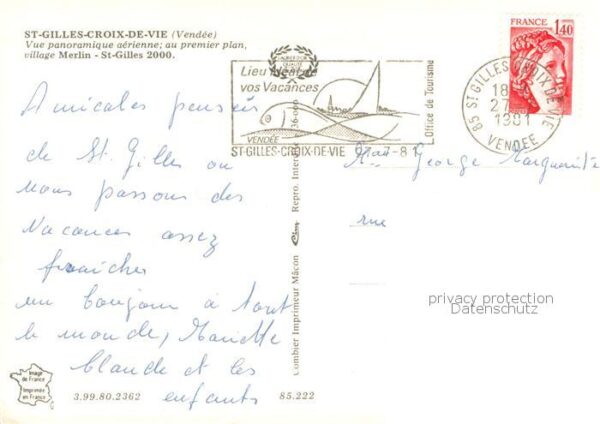 ST-GILLES-CROIX-DE-VIE (Vendée)
Vue panoramique aérienne; au premier plan,
village Merlin - St-Gilles 2000.
Amicales pensées
de St. Gilles ou
nous passons des
vacances assez
fraîches
un bonjour à tout
le monde, Mariette
Claude et les
enfants
Image
de France
Imprimée
en France
3.99.80.2362
85.222
Combier Imprimeur Mâcon
Repro. Interdite
Lieu
vos Vacances
VENDÉE
ST-GILLES-CROIX-DE-VIE
Office de Tourisme
FRANCE
1,40
85 ST GILLES CROIX DE VIE
18
27
1981
VENDEE
George Marguerite
rue
privacy protection
Datenschutz